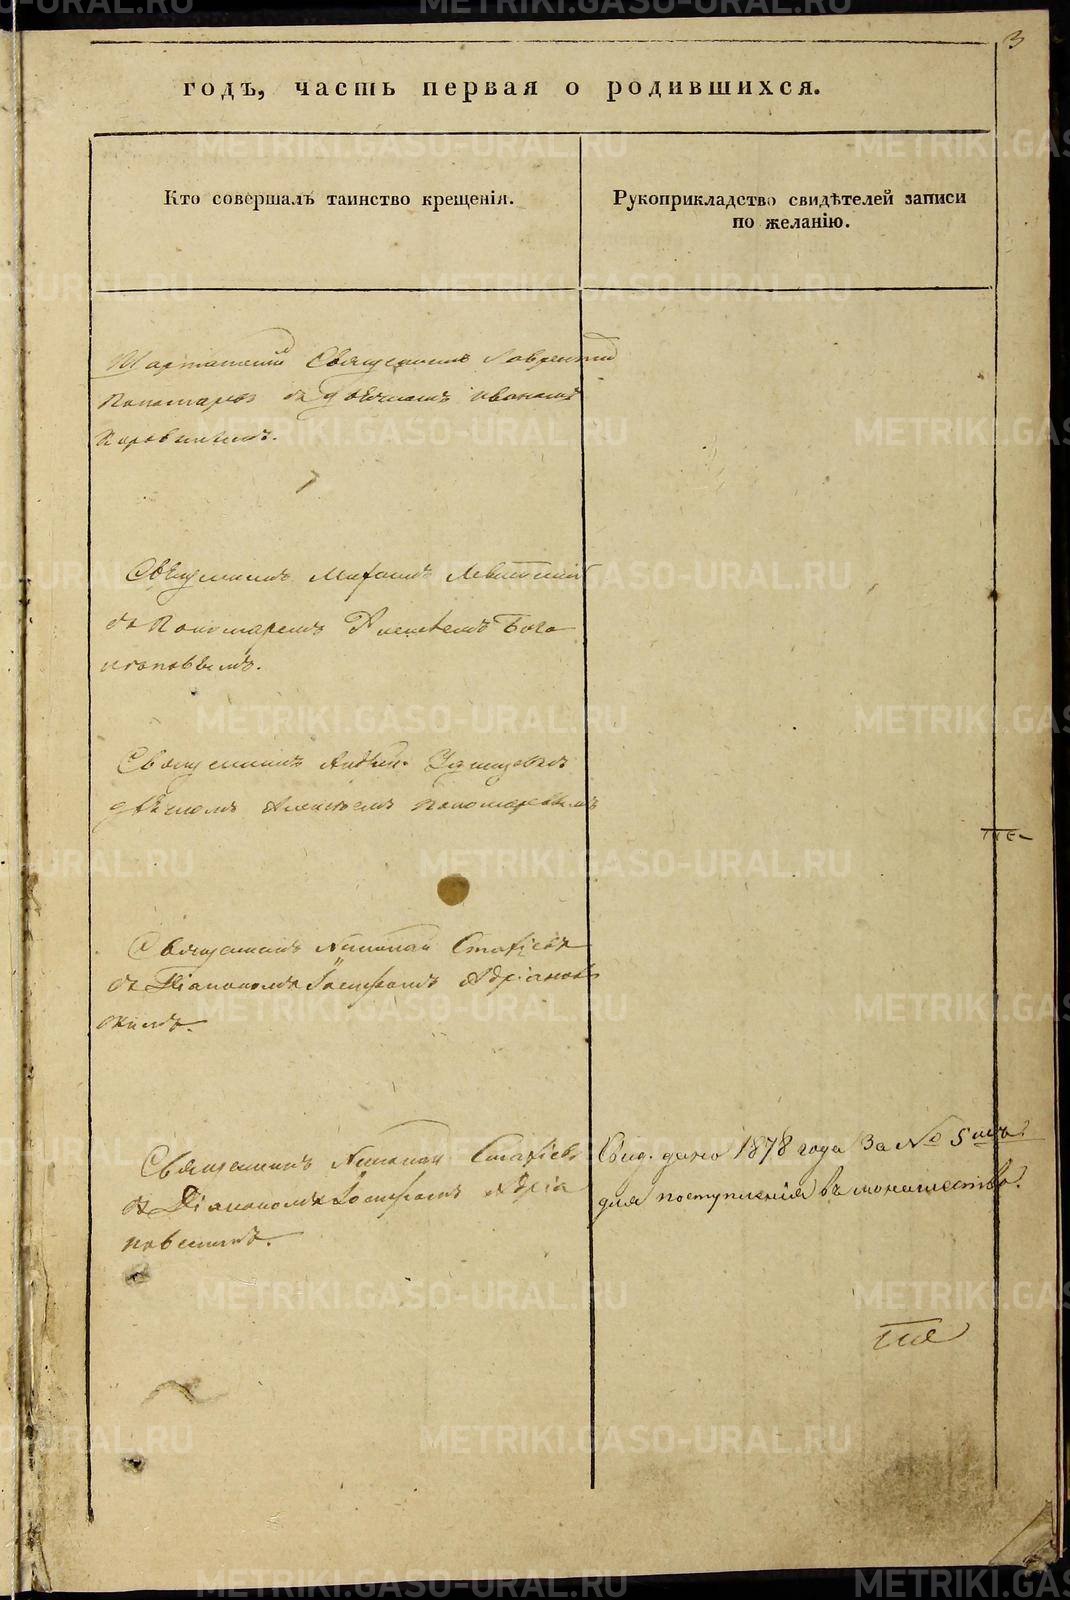 3
годъ, часть первая о родившихся.
Кто совершалъ таинство крещенія.
Рукоприкладство свидѣтелей записи
по желанію.
Шарташскій Священникъ Лаврентій
Пономаревъ съ дьячкомъ Иваномъ
Коровинымъ.
Священникъ Левитскій
съ Пономаремъ Алексѣемъ Бого
Священникъ Андрей
дьячкомъ Алексѣемъ Пономаревымъ
Священникъ Николай
съ Діакономъ Іосифомъ Адріанов
скимъ.
Священникъ Николай
съ Діакономъ Іосифомъ Адріа
новскимъ.
Свид. дано 1878 года за № 5мъ
для поступленія въ монашество.
METRIKI.GASO-URAL.RU